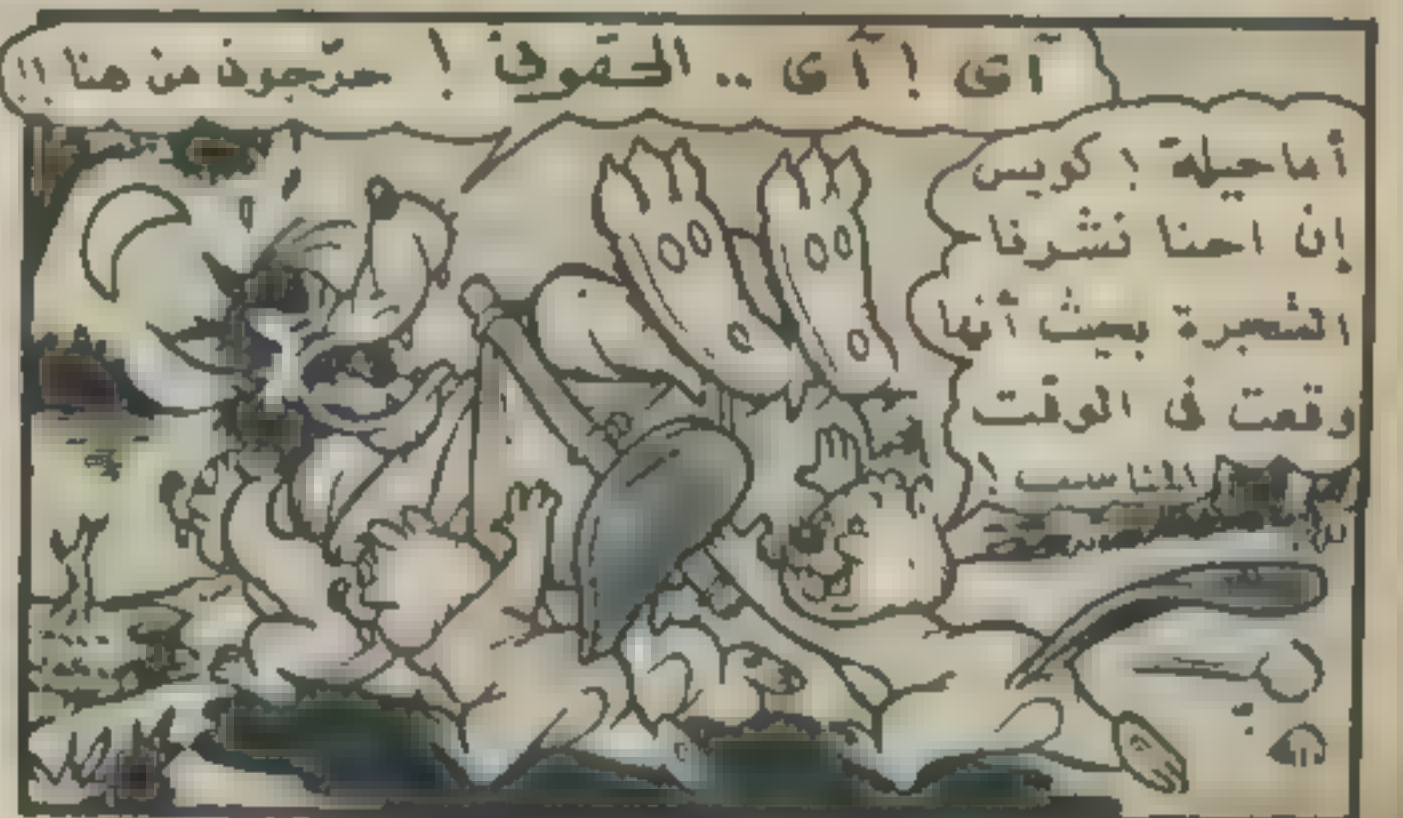 آى ! آى .. الحقونى ! خرّجونى من هنا !!
أما حيلة ! كويس
إن احنا نشرنا
الشجرة بحيث أنها
وقعت فى الوقت
المناسب !